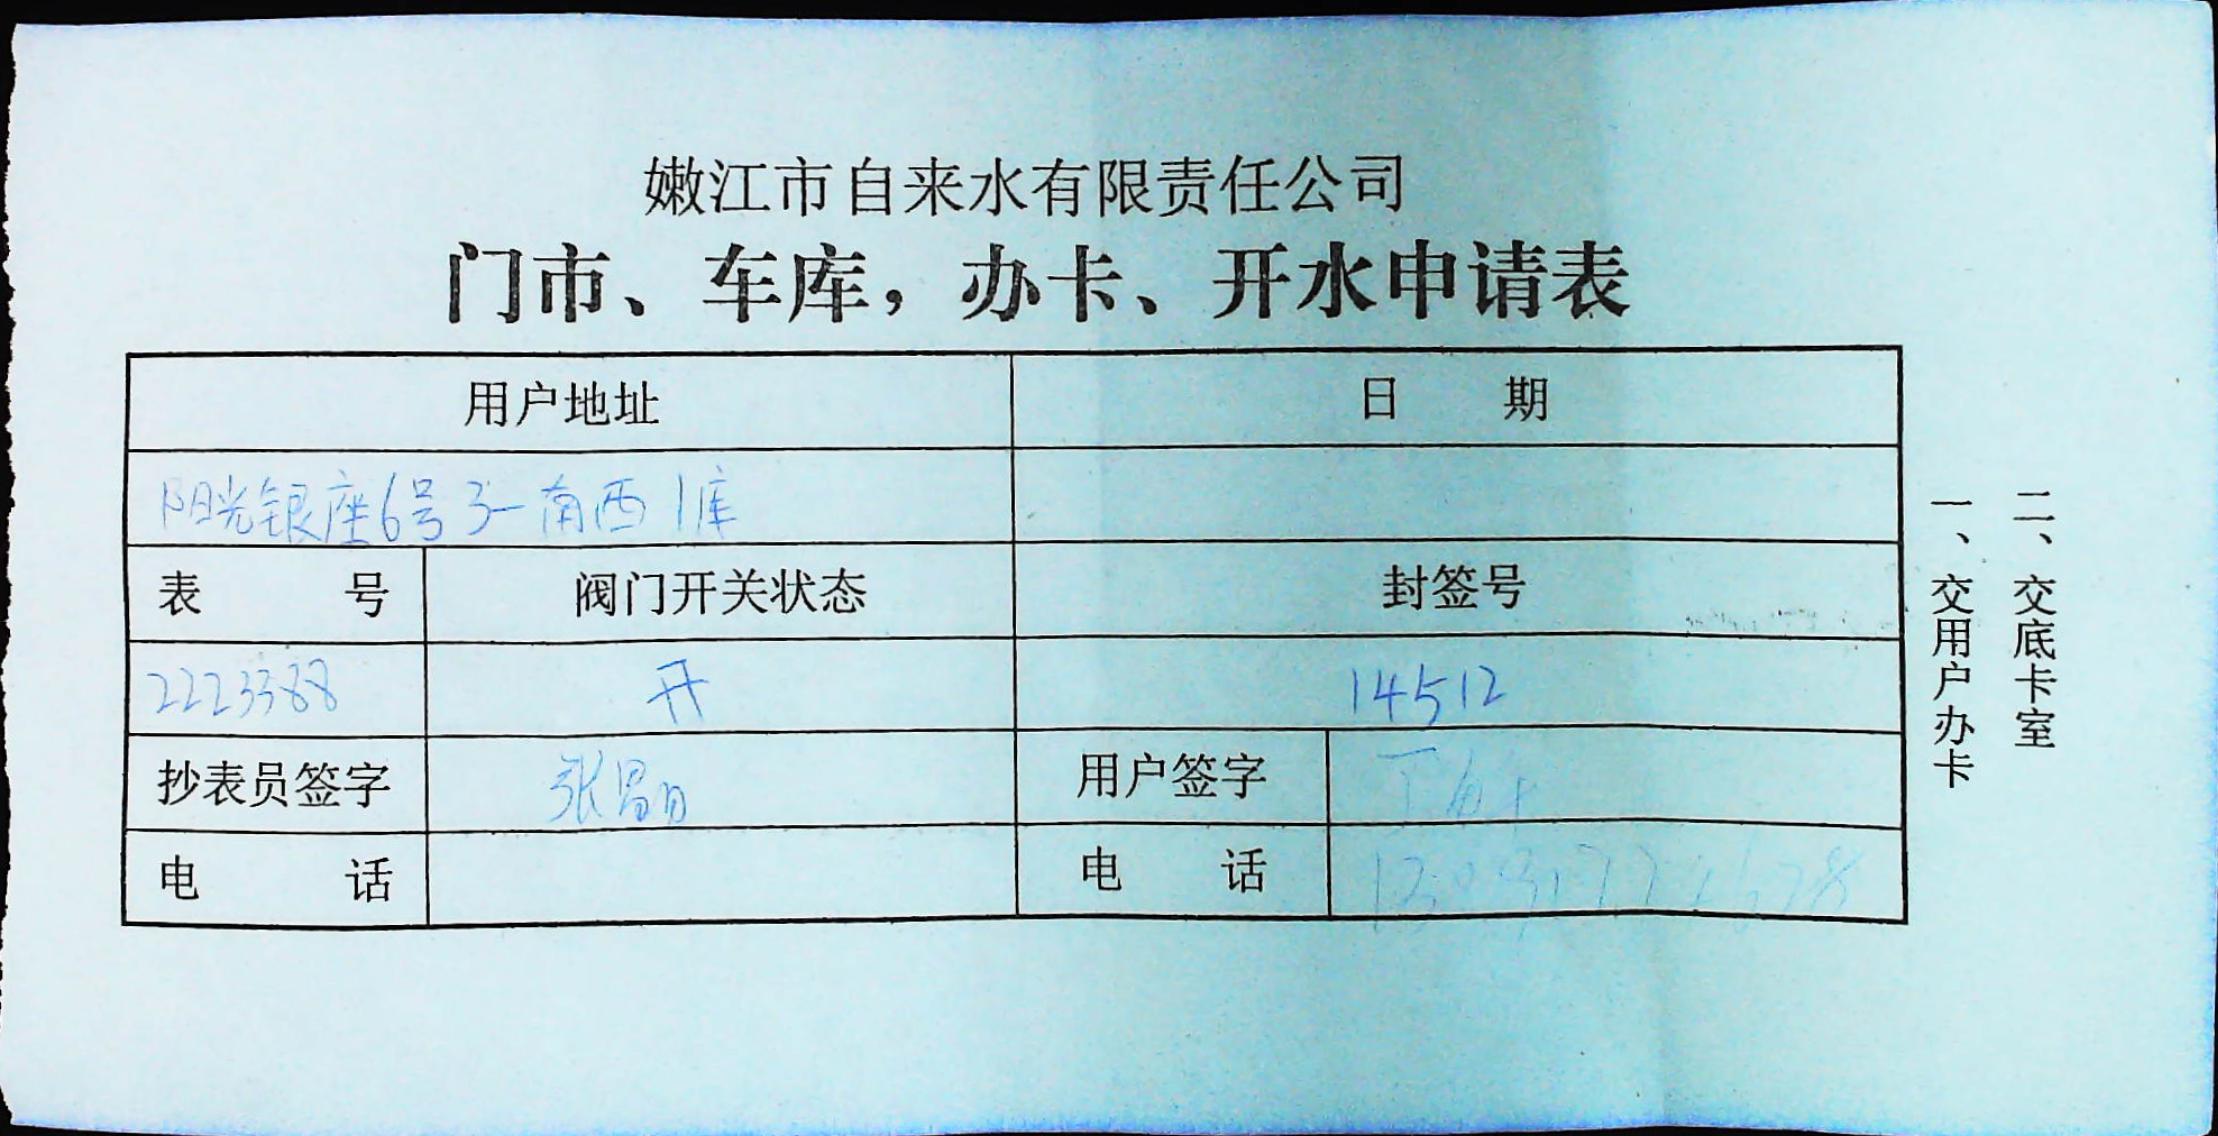 嫩江市自来水有限责任公司
门市、车库，办卡、开水申请表
用户地址 日 期
阳光银座6号3-南西1库
表 号 阀门开关状态 封签号
2223388 开 14512
抄表员签字 张 用户签字
电 话 电 话
一、交用户办卡
二、交底卡室